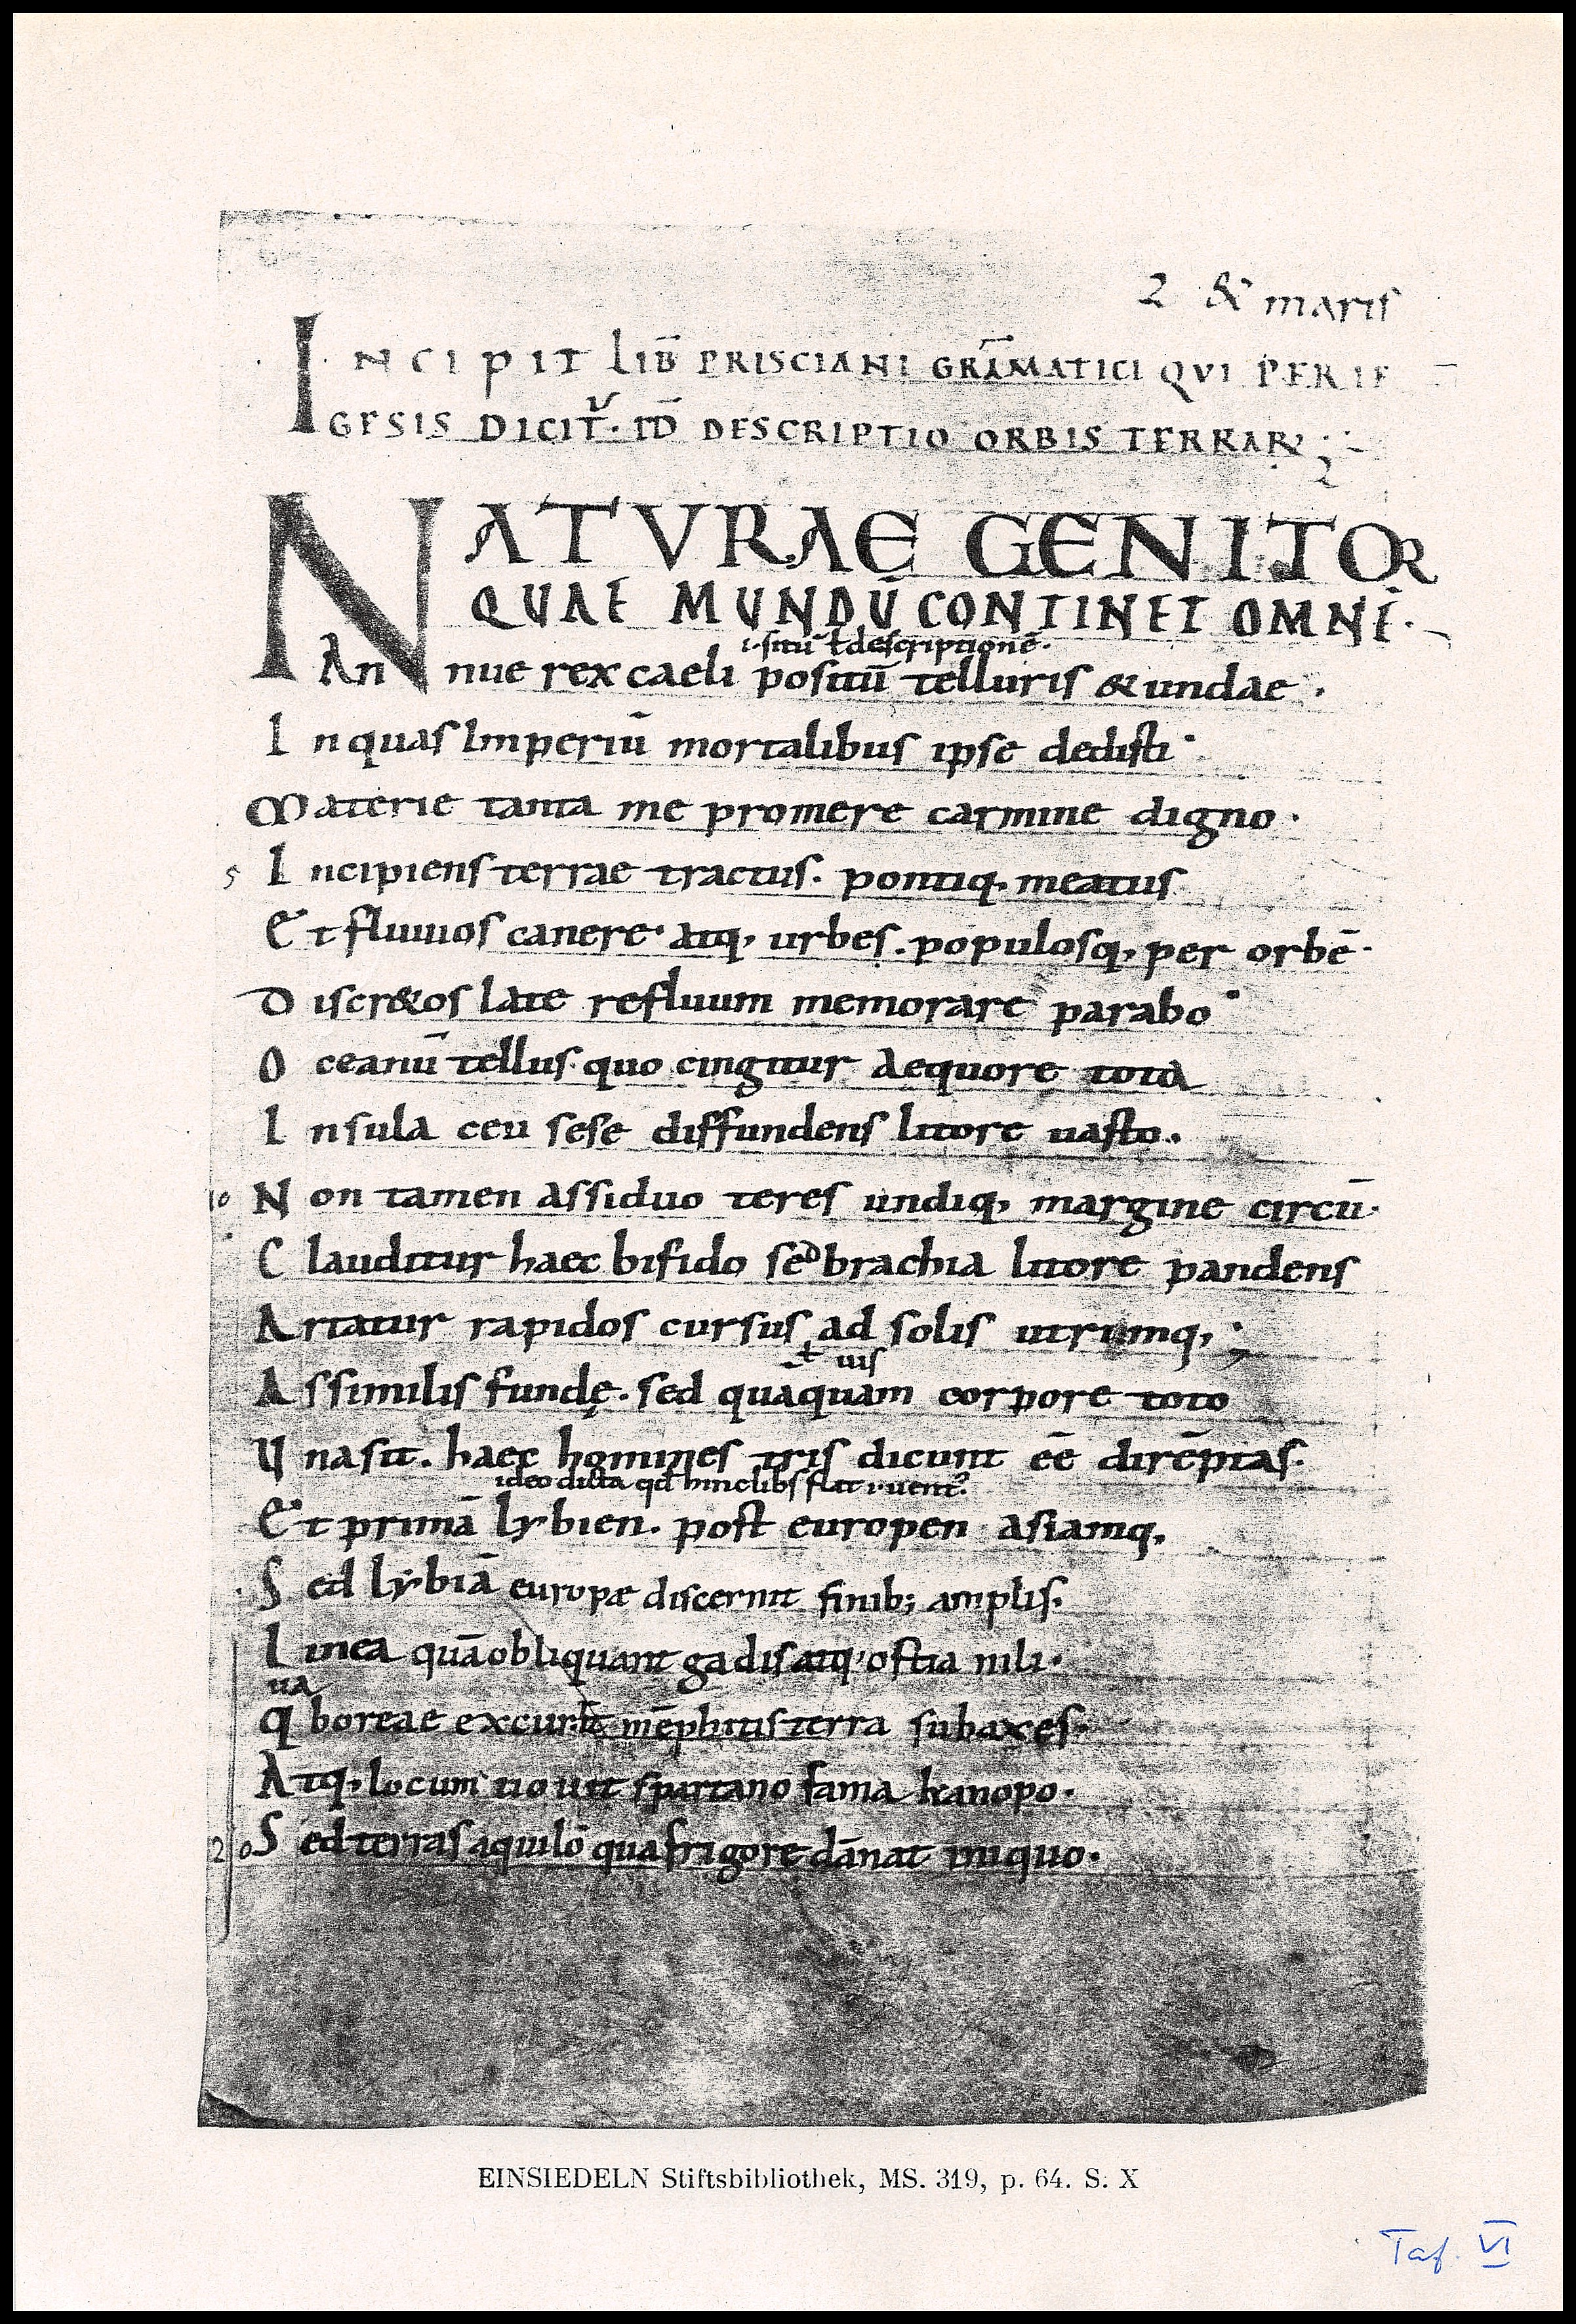 2 & maris
INCIPIT LIB̄ PRISCIANI GRĀMATICI QVI PERIE
GESIS DICIT᷑. ID̄ DESCRIPTIO ORBIS TERRARꝜ
NATVRAE GENITOR
QUAE MUNDŪ CONTINET OMNĒ.
.i. sitū ł descriptionē.
Annue rex caeli positū telluris & undae.
In quas Imperiū mortalibus ipse dedisti.
Materie tanta me promere carmine digno.
5 Incipiens terrae tractus. pontiq, meatus
Et fluuios canere. atq, urbes. populosq, per orbē.
Discr&os late refluum memorare parabo.
Oceanū tellus. quo cingitur aequore tota
Insula ceu sese diffundens litore uasto.
10 Non tamen assiduo teres undiq, margine circū.
Clauditur haec bifido sed brachia litore pandens
Artatur rapidos cursus ad solis utrumq, ;
ł uis
Assimilis fundę. sed quāquam corpore toto
Una sit. haec homines tris dicunt ēē dirēptas.
ideo dicta qđ hinc libs flat .i. uent᷒
Et primā lybien. post europen asiamq,
Sed lẏbiā europæ discernit finib; amplis.
Linea quā obliquant gadis atq, ostia nili.
ua
q boreae excurrit mēphitis terra sub axes.
Atq, locum uouit spartano fama kanopo.
20 Sed terras aquilō qua frigore dānat iniquo.
EINSIEDELN Stiftsbibliothek, MS. 319, p. 64. S. X
Taf. VI